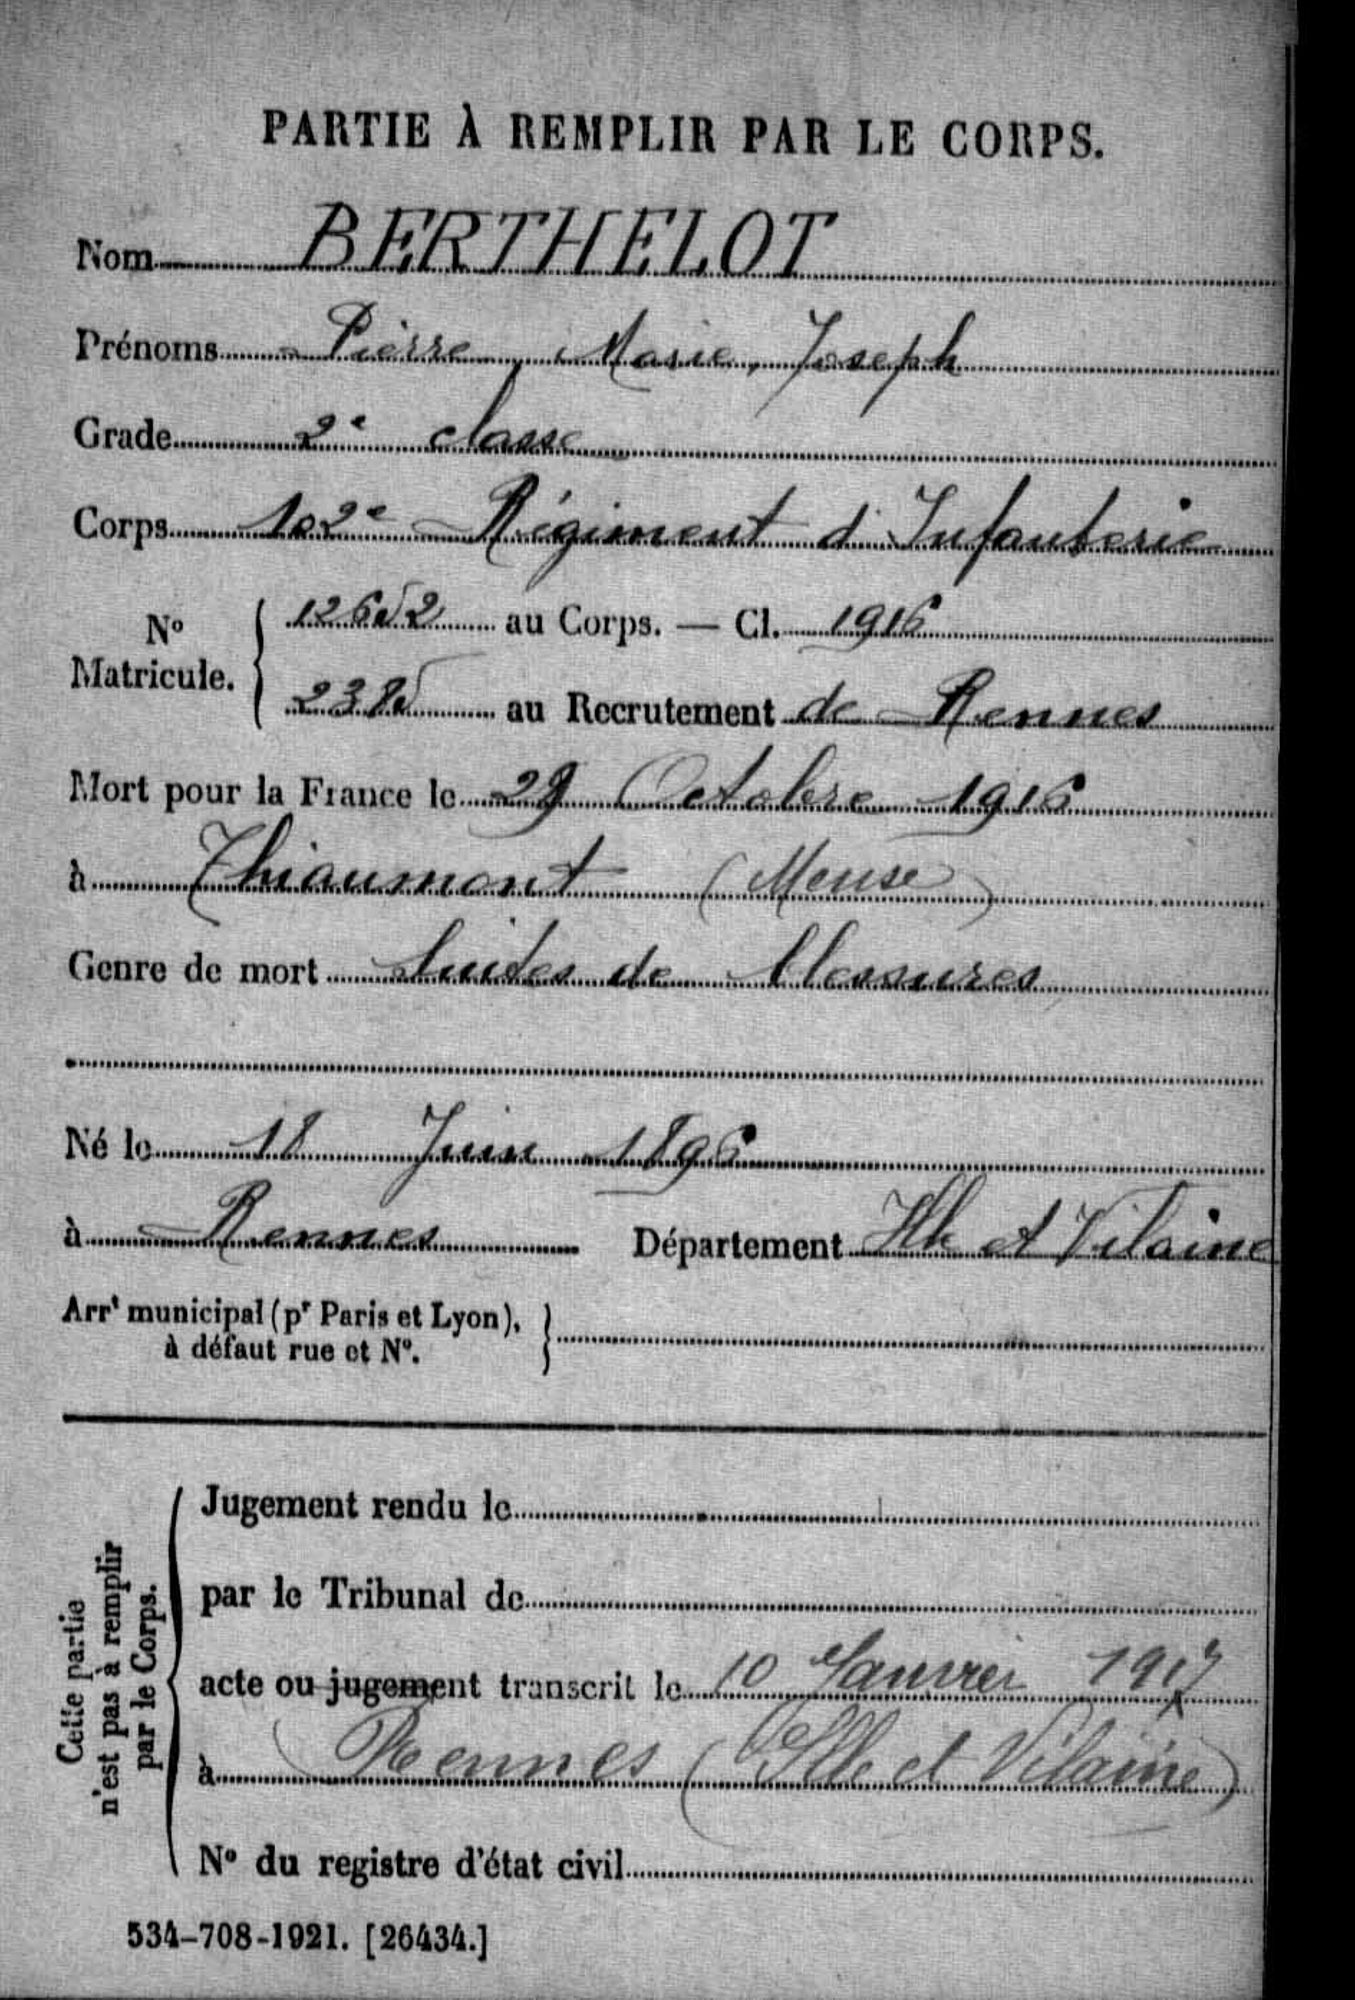 PARTIE À REMPLIR PAR LE CORPS.
Nom BERTHELOT
Prénoms Pierre, Marie, Joseph
Grade 2e classe
Corps 102e Régiment d'Infanterie
No Matricule. 12652 au Corps. — Cl. 1916
2385 au Recrutement de Rennes
Mort pour la France le 29 Octobre 1916
à Thiaumont (Meuse)
Genre de mort Suites de blessures
Né le 18 Juin 1896
à Rennes Département Ille et Vilaine
Arrt municipal (pr Paris et Lyon),
à défaut rue et No.
Cette partie
n'est pas à remplir
par le Corps.
Jugement rendu le
par le Tribunal de
acte ou jugement transcrit le 10 Janvier 1917
à Rennes (Ille et Vilaine)
No du registre d'état civil
534-708-1921. [26434.]